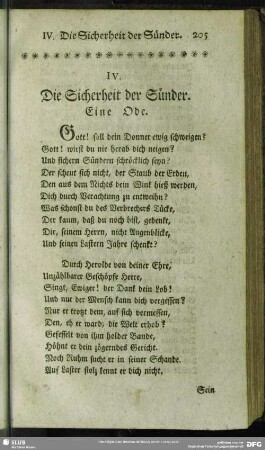 IV. Die Sicherheit der Sünder. 205
IV.
Die Sicherheit der Sünder.
Eine Ode.
Gott! soll dein Donner ewig schweigen?
Gott! wirst du nie herab dich neigen?
Und sichern Sündern schröcklich seyn?
Der scheut sich nicht, der Staub der Erden,
Den aus dem Nichts dein Wink hieß werden,
Dich durch Verachtung zu entweihn?
Was schonst du des Verbrechers Tücke,
Der kaum, daß du noch bist, gedenkt,
Dir, seinem Herrn, nicht Augenblicke,
Und seinen Lastern Jahre schenkt?
Durch Herolde von deiner Ehre,
Unzählbarer Geschöpfe Heere,
Singt, Ewiger! der Dank dein Lob!
Und nur der Mensch kann dich vergessen?
Nur er trotzt dem, auf sich vermessen,
Den, eh er ward, die Welt erhob?
Gefesselt von ihm holder Bande,
Höhnt er dein zögerndes Gericht.
Noch Ruhm sucht er in seiner Schande.
Auf Laster stolz kennt er dich nicht.
Sein
SLUB
DFG